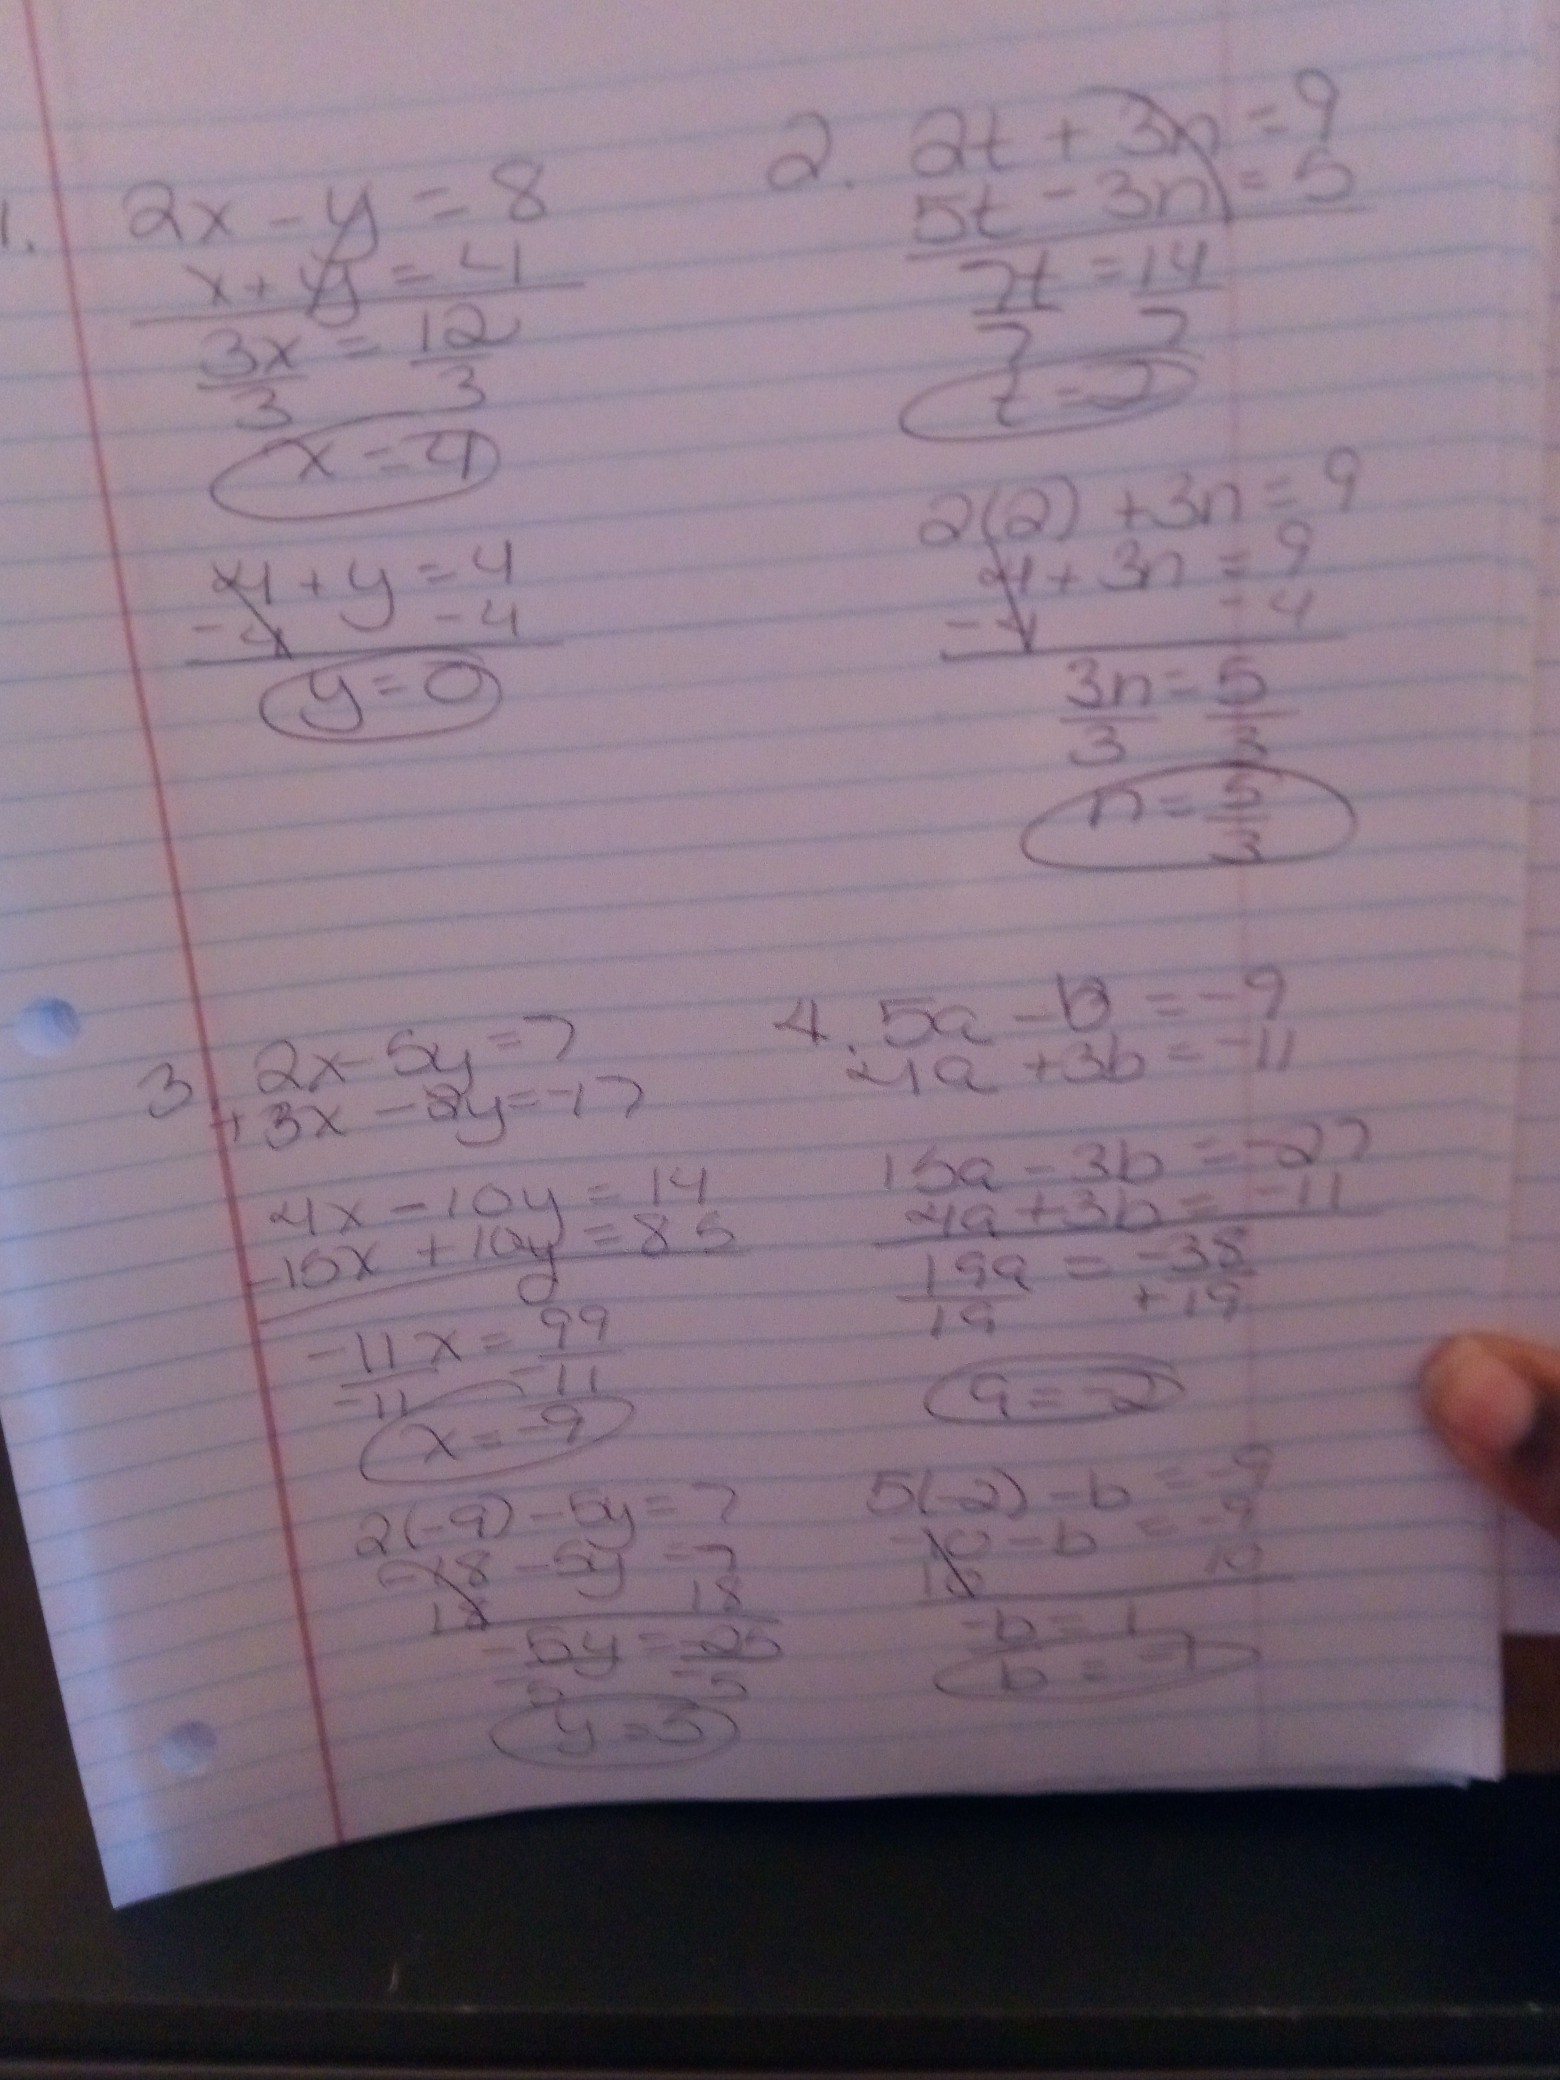 1. 2x - y = 8
x + y = 4
3x = 12
3 3
x = 4
4 + y = 4
-4 -4
y = 0
2. 2t + 3n = 9
5t - 3n = 5
7t = 14
7 7
t = 2
2(2) + 3n = 9
4 + 3n = 9
-4 -4
3n = 5
3 3
n = 5
3
3 2x - 5y = 7
+3x - 2y = -17
4x - 10y = 14
-15x + 10y = 85
-11x = 99
-11 -11
x = -9
2(-9) - 5y = 7
-18 - 5y = 7
18 18
-5y = 25
-5 -5
4. 5a - b = -9
4a + 3b = -11
15a - 3b = -27
4a + 3b = -11
19a = -38
19 +19
a = -2
5(-2) - b = -9
-10 - b = -9
10 10
-b = 1
b = -1